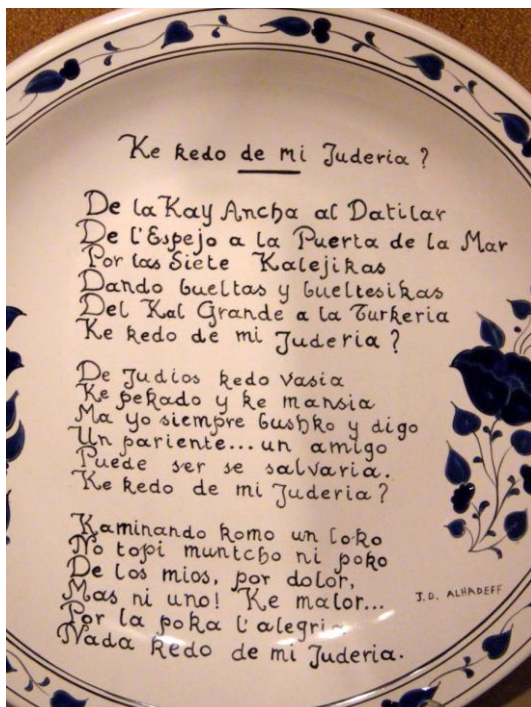 Ke kedo de mi Juderia ?
De la Kay Ancha al Datilar
De l'Espejo a la Puerta de la Mar
Por las Siete Kalejikas
Dando bueltas y bueltesikas
Del Kal Grande a la Turkeria
Ke kedo de mi Juderia ?
De Judios kedo vasia
Ke pekado y ke mansia
Ma yo siempre bushko y digo
Un pariente... un amigo
Puede ser se salvaria.
Ke kedo de mi Juderia ?
Kaminando komo un loko
No topi muntcho ni poko
De los mios, por dolor,
Mas ni uno! Ke malor...
Por la poka l'alegria
Nada kedo de mi Juderia.
J.D. ALHADEFF